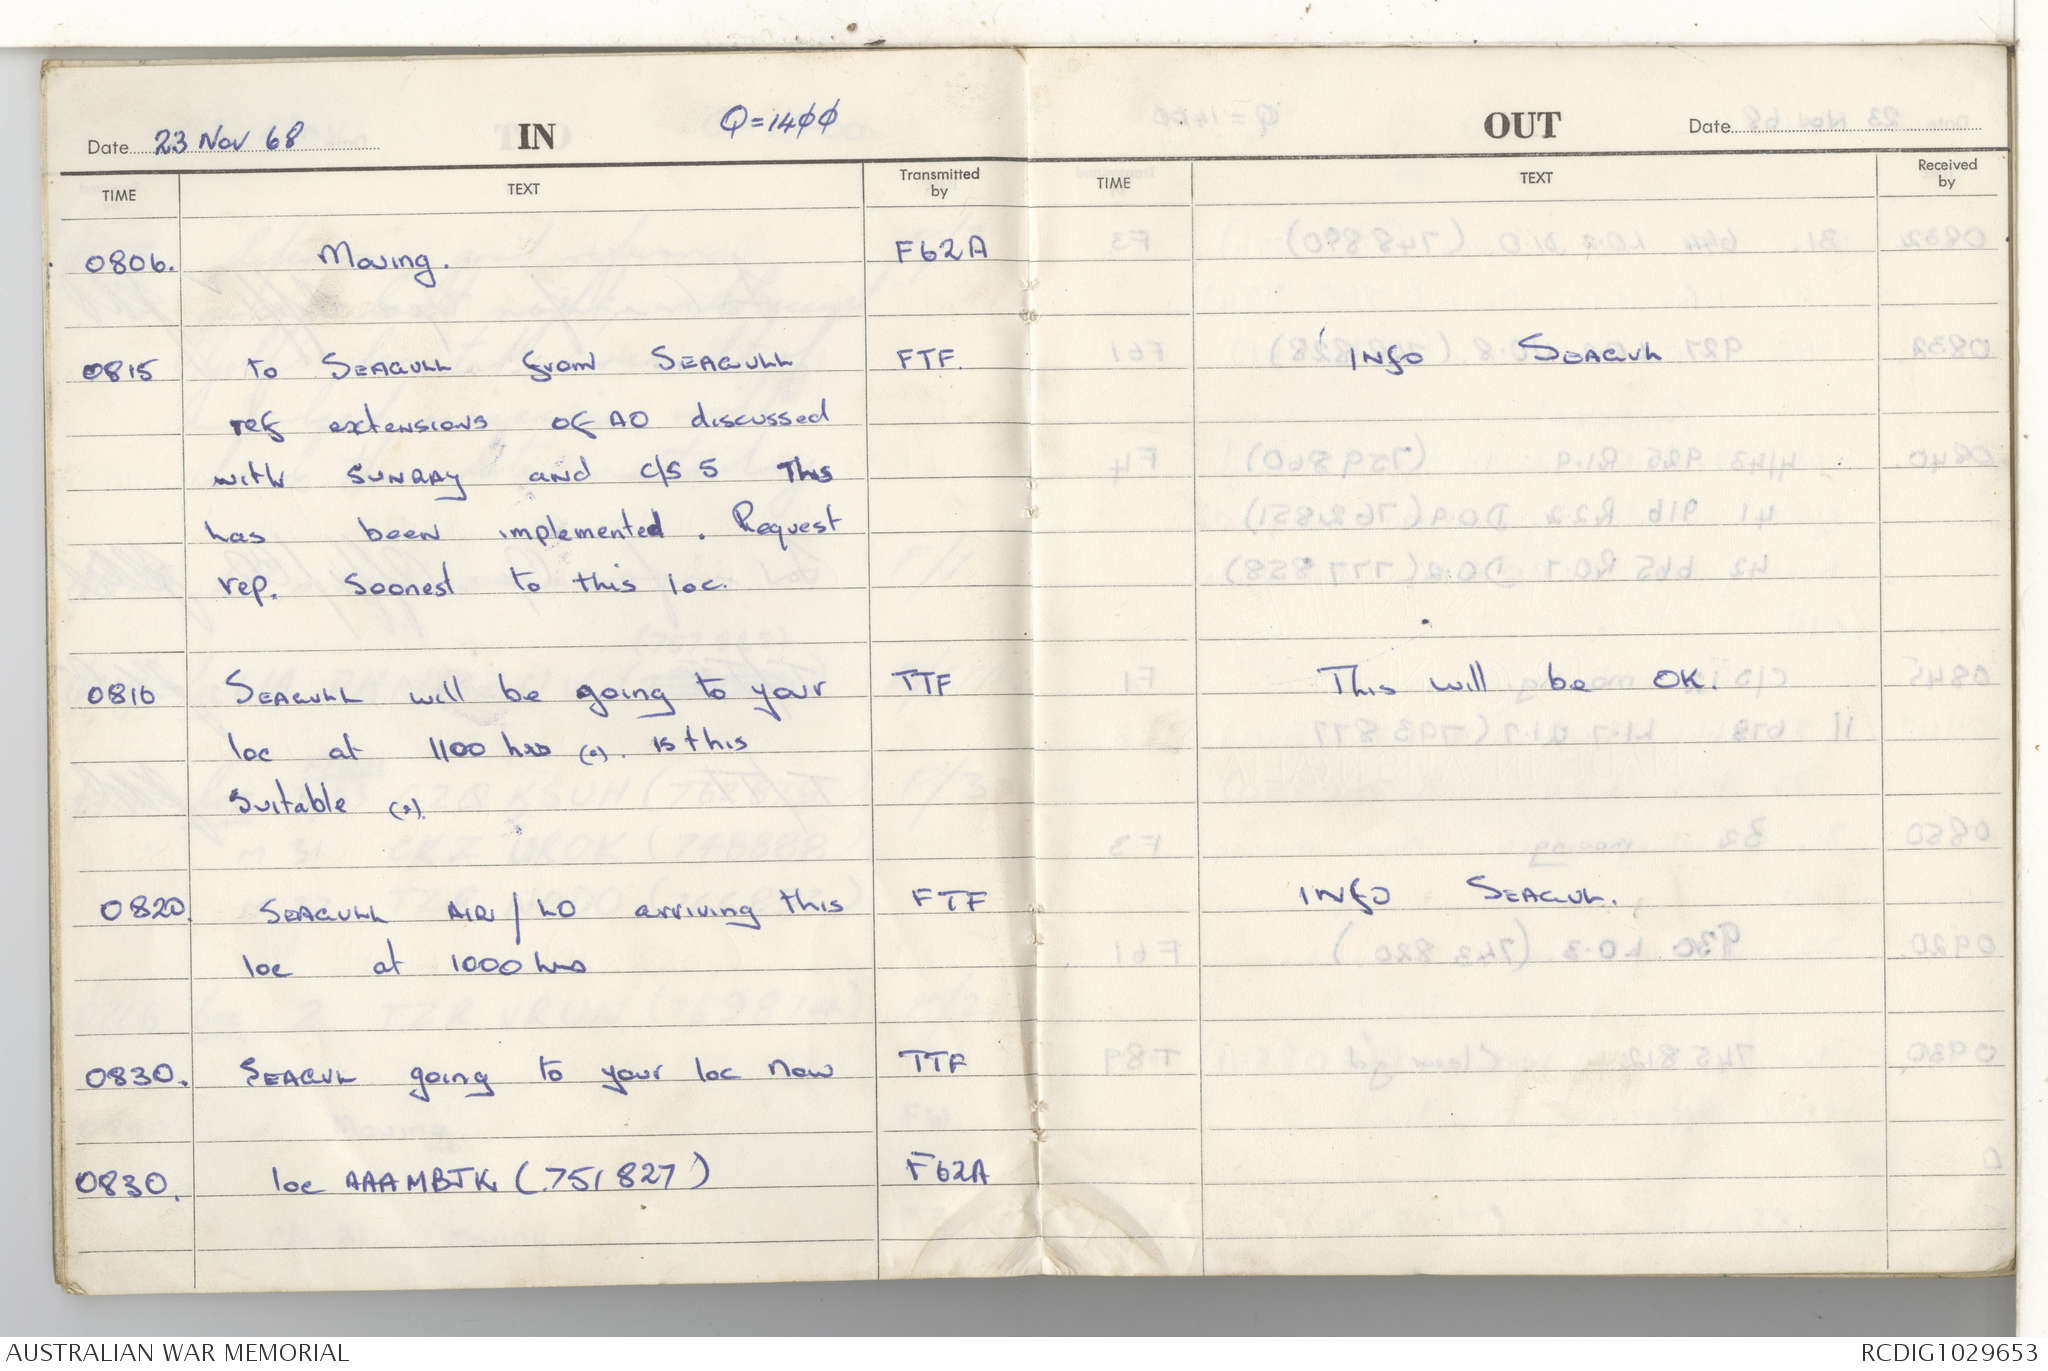 Date 23 Nov 68 IN Q=14ØØ
TIME TEXT Transmitted by
0806. Moving. F62A
0815 to SEAGULL from SEAGULL FTF.
ref extensions of AO discussed
with SUNRAY and C/S 5 This
has been implemented. Request
rep. Soonest to this loc.
0816 SEAGULL will be going to your TTF
loc at 1100 hrs (.). is this
Suitable (.).
0820. SEAGULL AIR/LO arriving this FTF
loc at 1000 hrs
0830. SEAGUL going to your loc now TTF
0830. loc AAAMBJK (751827) F62A
OUT Date
TIME TEXT Received by
INFO SEAGUL
This will be OK.
INFO SEAGUL.
AUSTRALIAN WAR MEMORIAL RCDIG1029653